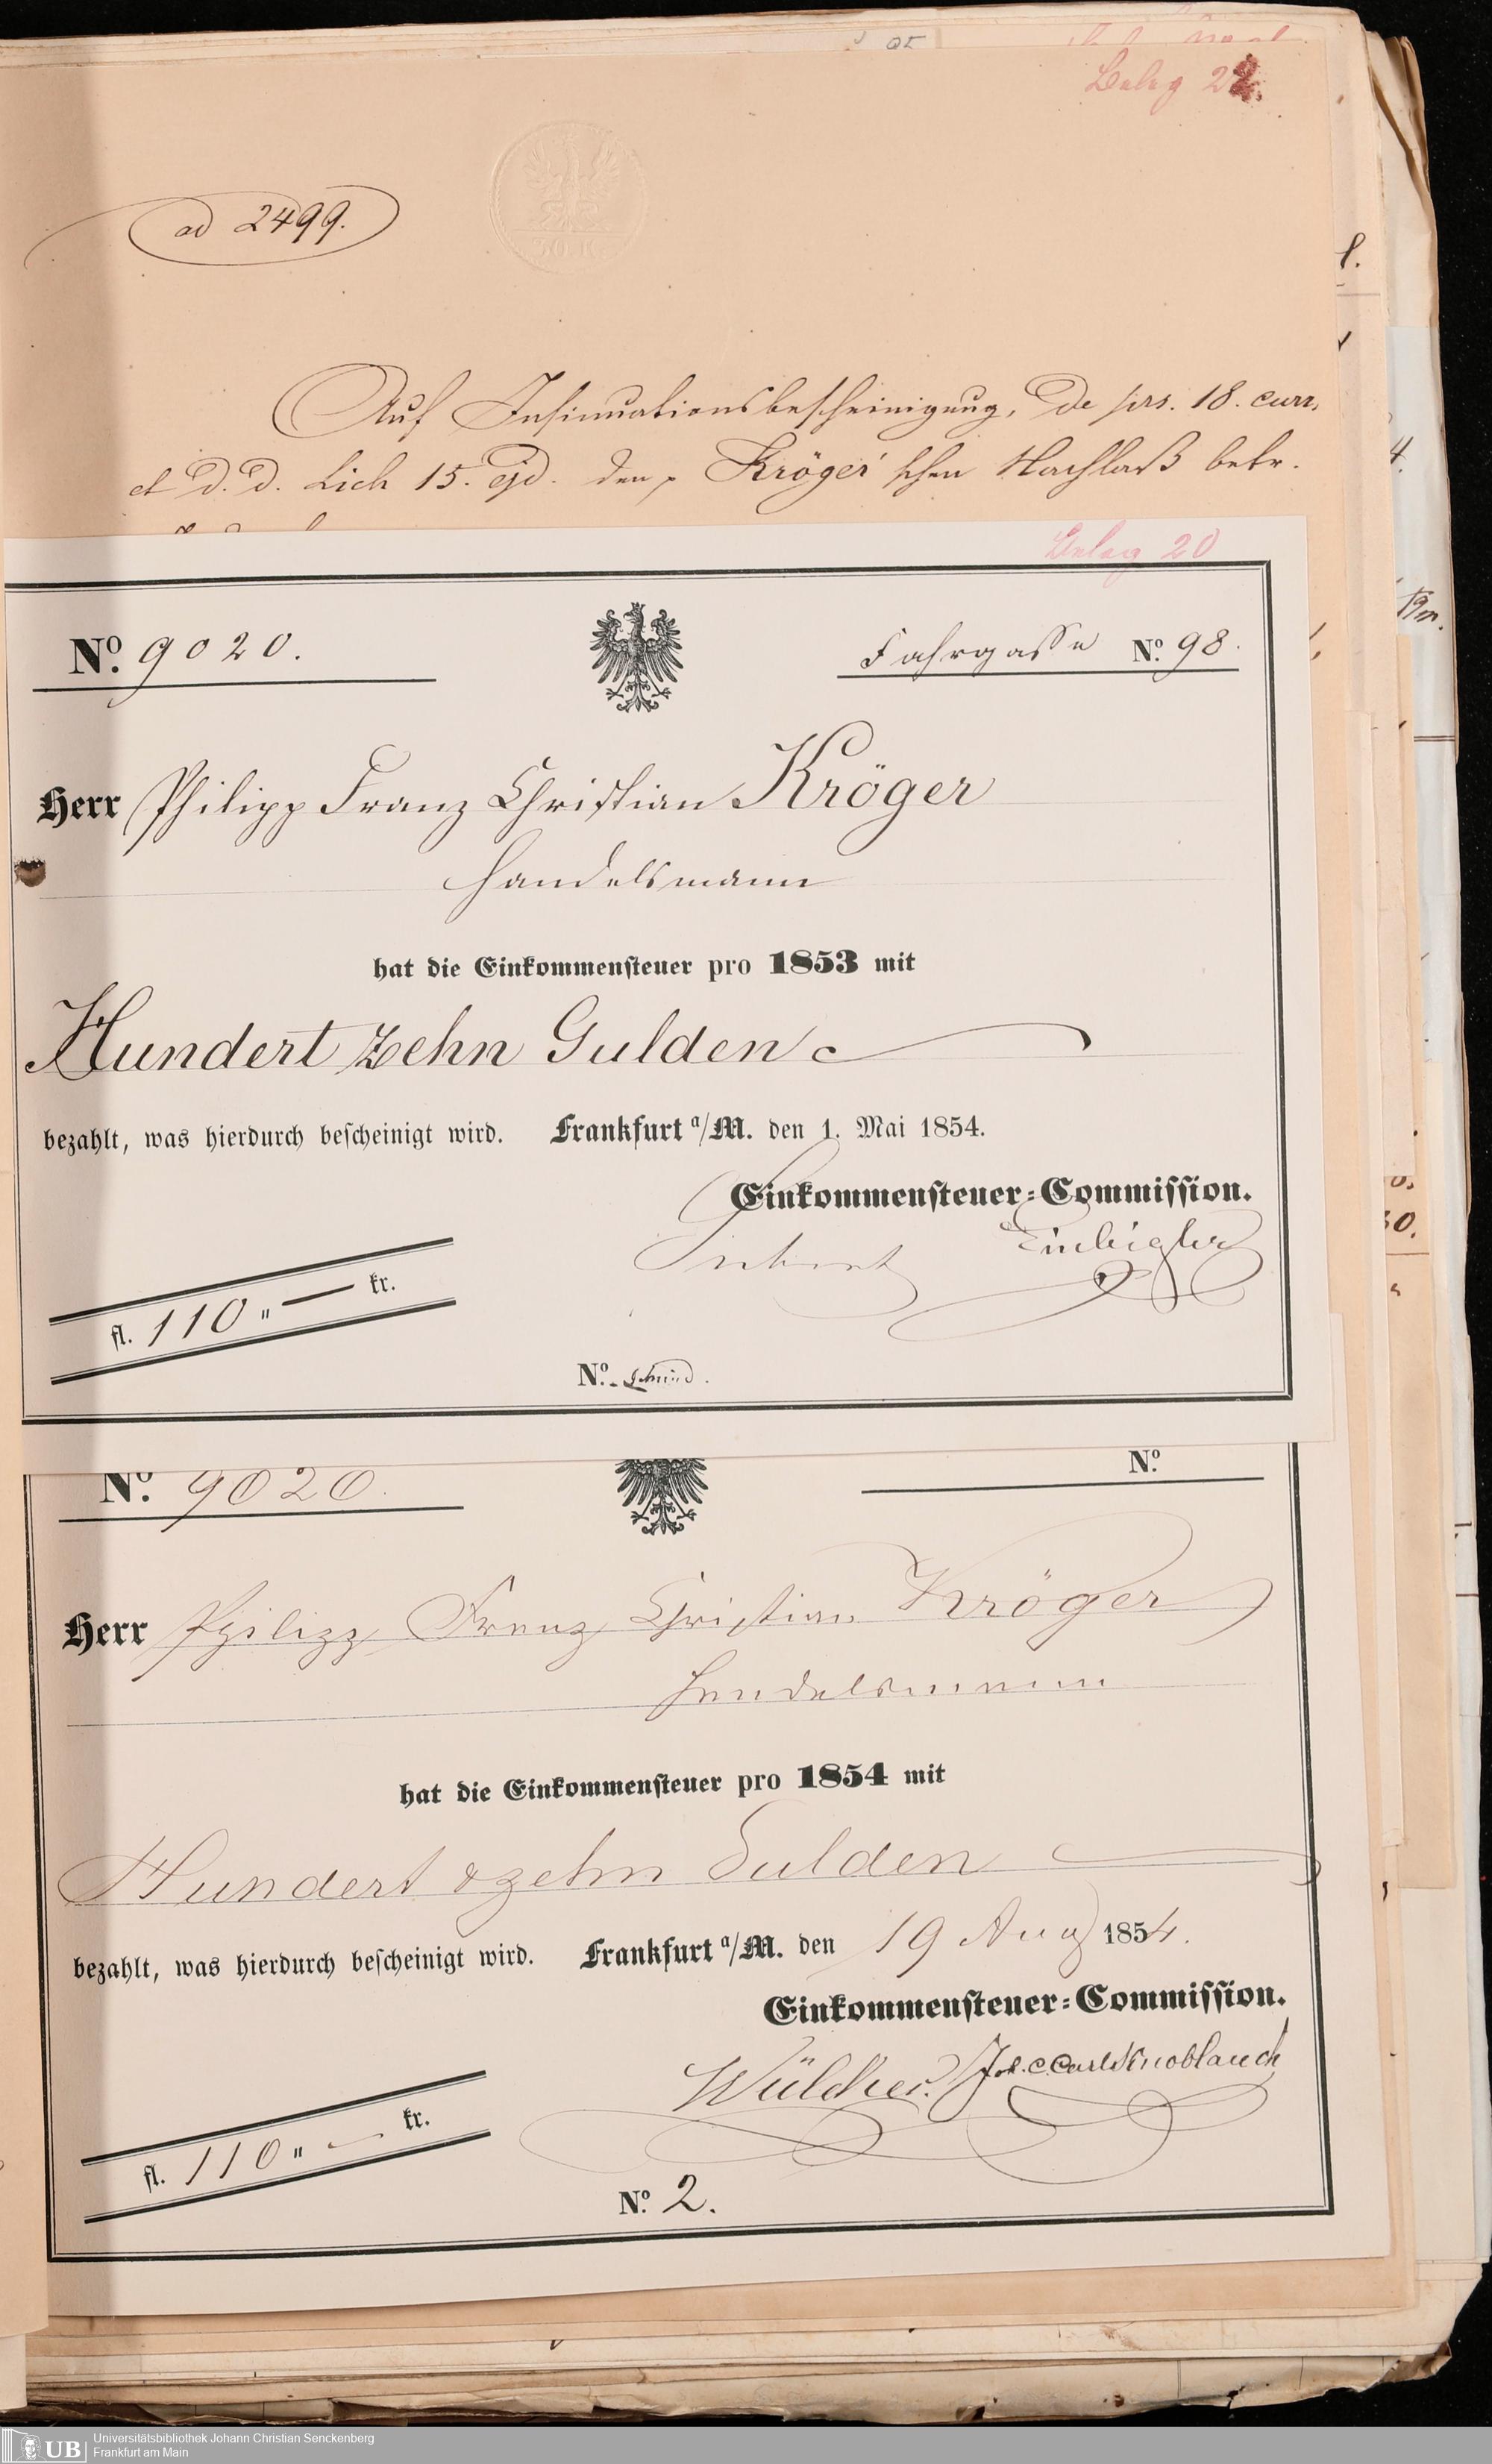 Beleg 22.
ad 2499.
30 K.
Auf Insinuationsbescheinigung, de prs. 18. curr.
et d. d. Lich 15. ejd. den Kröger'schen Nachlaß betr.
Beleg 20
No. 9020.
Fahrgasse No. 98.
Herr Philipp Franz Christian Kröger
Handelsmann
hat die Einkommensteuer pro 1853 mit
Hundert zehn Gulden
bezahlt, was hierdurch bescheinigt wird. Frankfurt a/M. den 1. Mai 1854.
Einkommensteuer-Commission.
Einbigler
fl. 110 " — kr.
No.
No. 9020.
No.
Herr Philipp Franz Christian Kröger
Handelsmann
hat die Einkommensteuer pro 1854 mit
Hundert & zehn Gulden
bezahlt, was hierdurch bescheinigt wird. Frankfurt a/M. den 19 Aug 1854.
Einkommensteuer-Commission.
Wülcker. Joh. C. Carl Knoblauch
fl. 110 " — kr.
No. 2.
UB Universitätsbibliothek Johann Christian Senckenberg
Frankfurt am Main